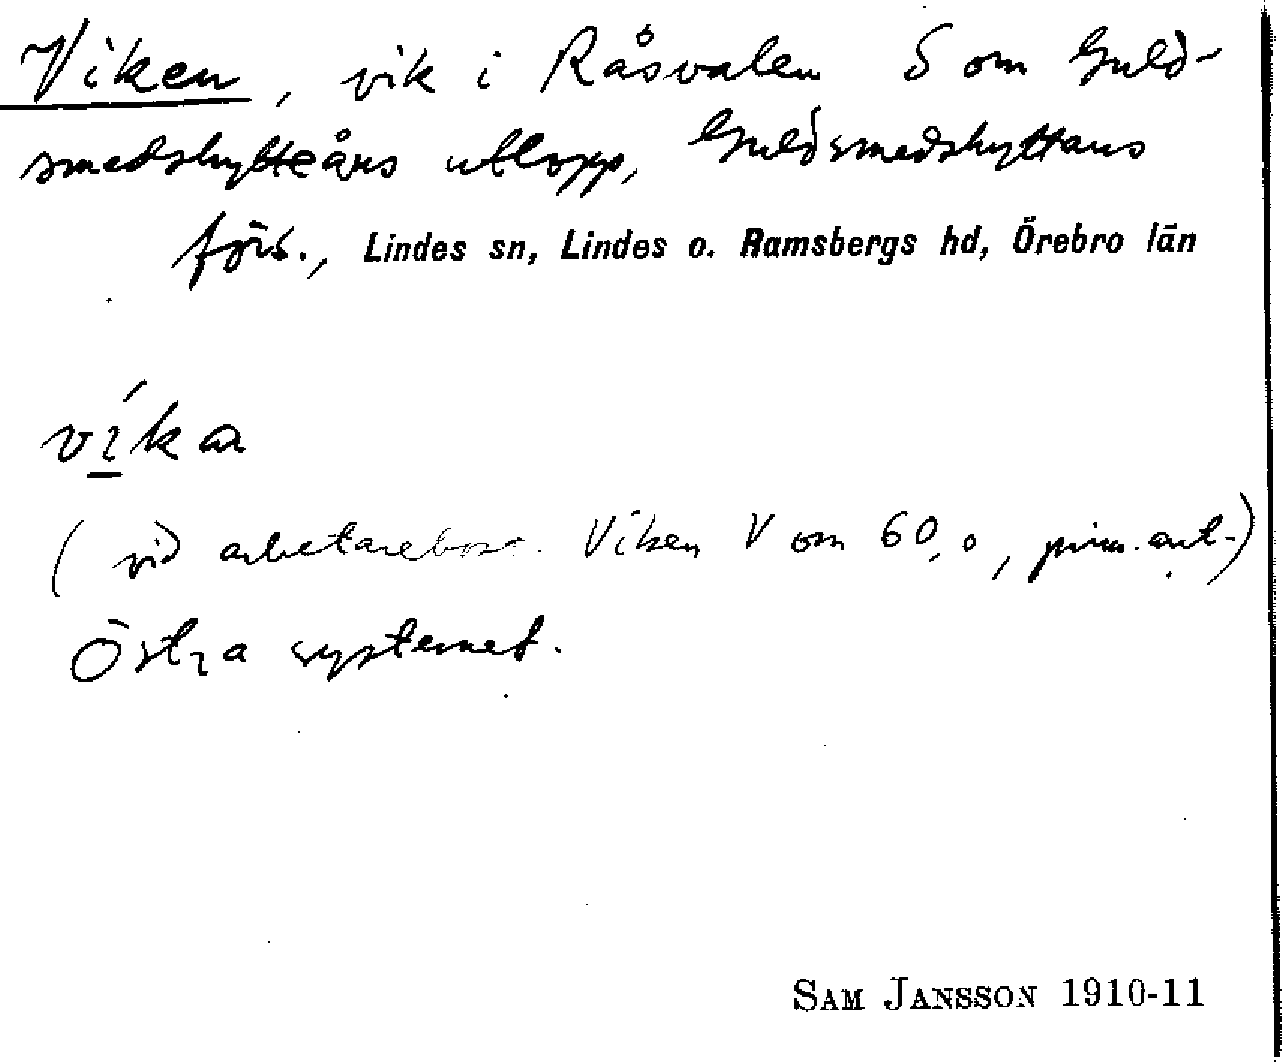 Viken, vik i Råsvalen S om Guld-
smedshytteåns utlopp, Guldsmedshyttans
förs., Lindes sn, Lindes o. Ramsbergs hd, Örebro län
víka
(vid arbetarebost. Viken V om 60,0, prim. ant.)
Östra systemet.
SAM JANSSON 1910-11